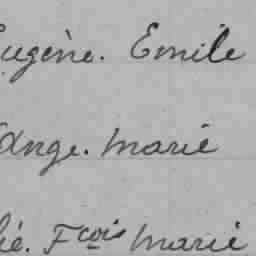 Eugène. Emile
Ange. Marie
ié. Fçois Marie